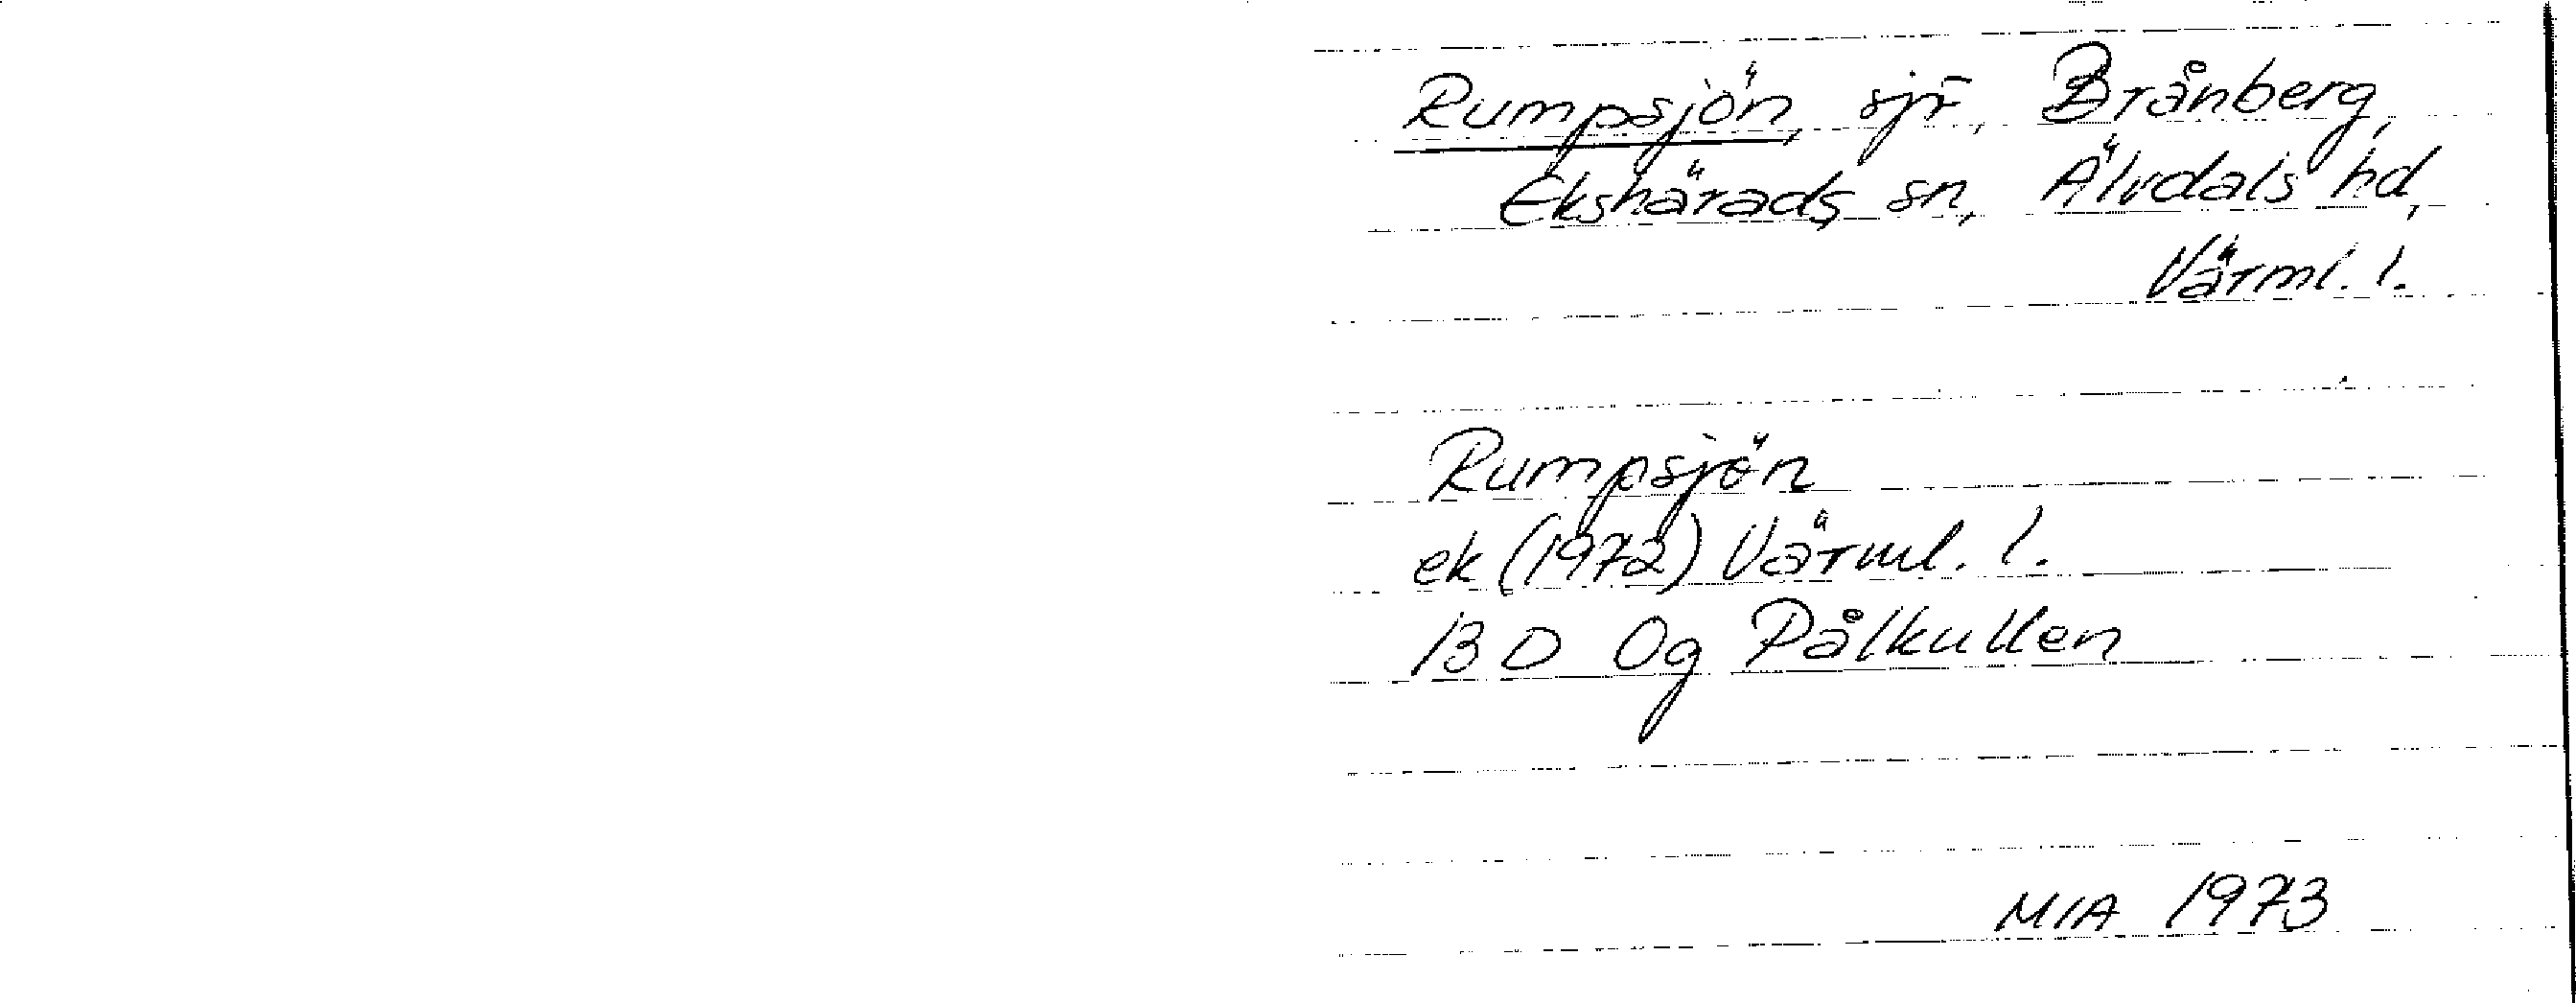 Rumpsjön, sjr, Brånberg,
Ekshärads sn, Älvdals hd,
Värml. l.
Rumpsjön
ek (1972) Värml. l.
13 D 0g Pålkullen
MIA 1973